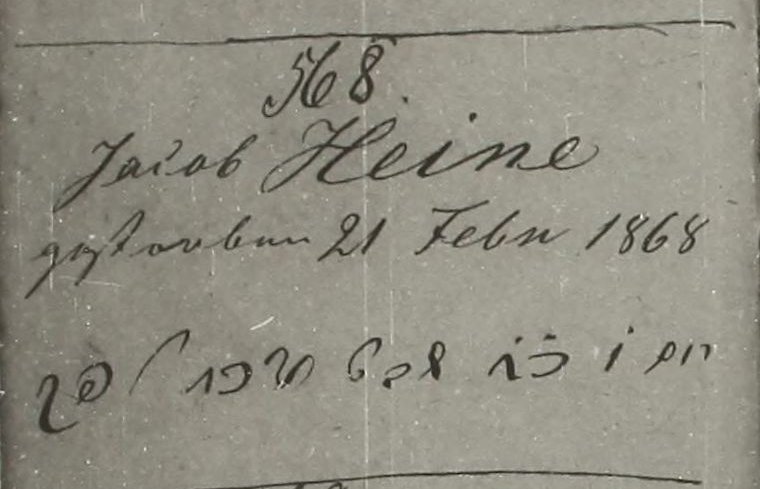 568.
Jacob Heine
gestorben 21 Febr 1868
יום ו׳ כ״ח שבט תרכח לפק